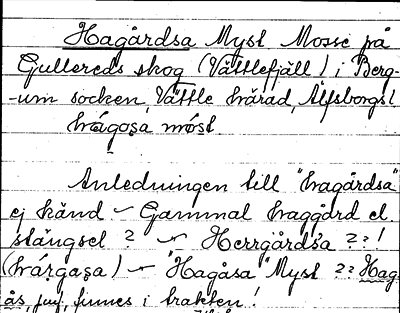 Hagårdsa Myst Mosse på
Gullereds skog (Vättlefjäll) i Berg-
-um socken, Vättle härad, Älfsborgs l
hágoṣa møst
Anledningen till "hagårdsa"
ej känd - Gammal haggård el.
stängsel ? - Herrgårds'a ??!
(hárgaṣa) - "Hagåsa" Myst ?? Hag
ås, finnes i trakten!